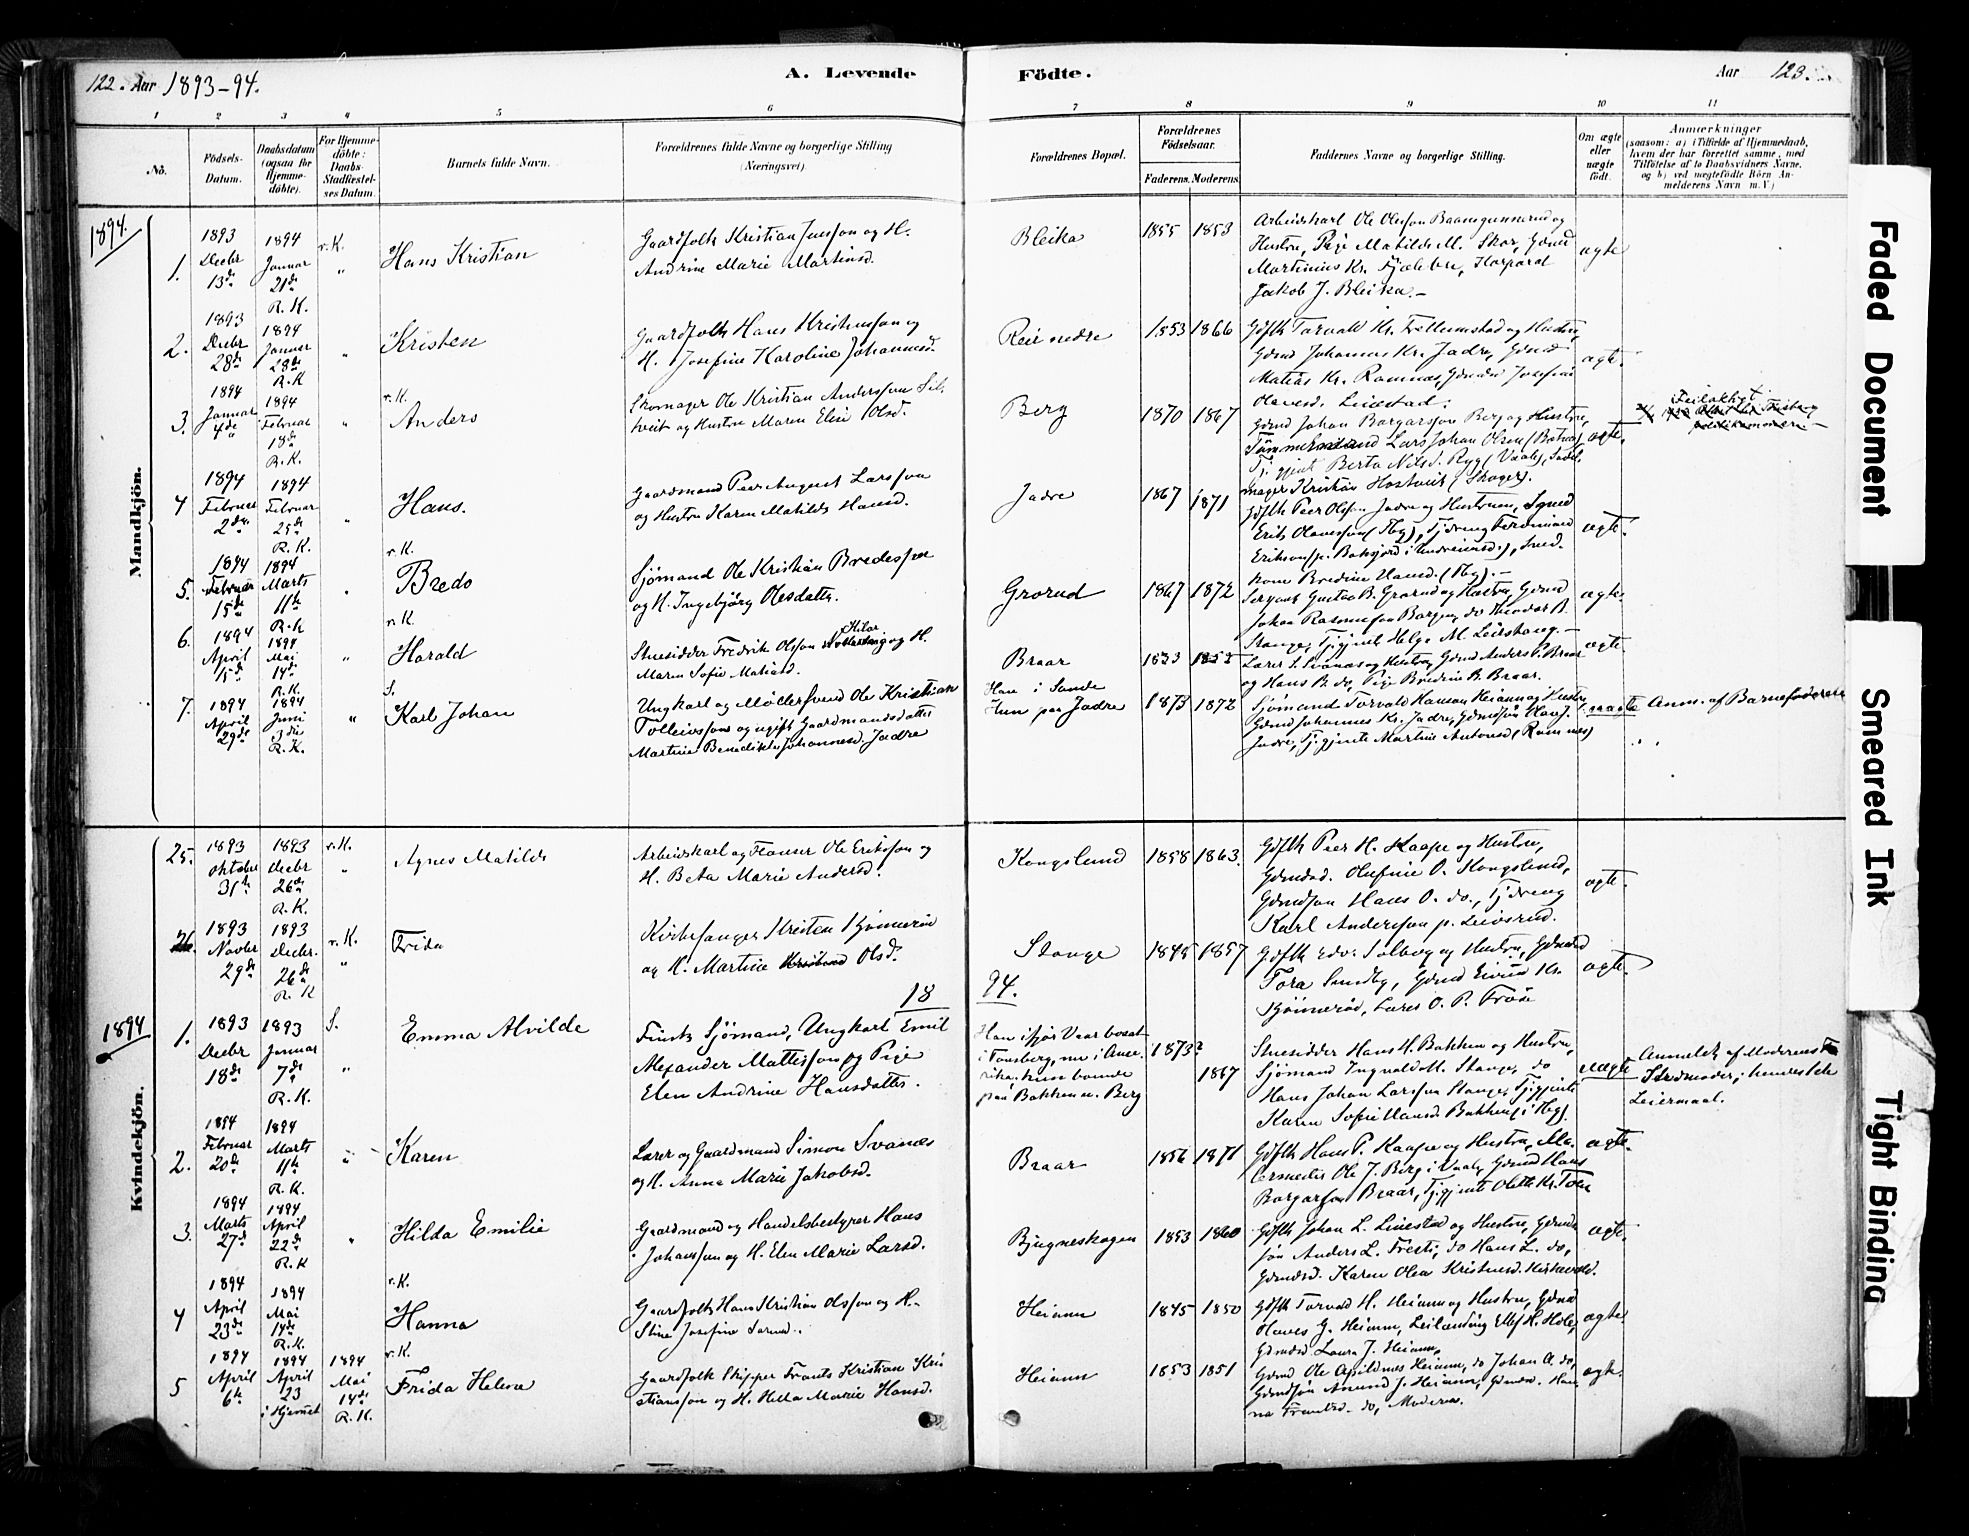 122. Aar 1893-94.
A. Levende
Födte.
Aar 123.
1 2 3 4 5 6 7 8 9 10 11
No.
Födsels-
Datum.
Daabsdatum
(ogsaa for
Hjemme-
döbte).
For Hjemme-
döbte:
Daabs-
Stadfæstel-
ses Datum.
Barnets fulde Navn.
Forældrenes fulde Navne og borgerlige Stilling
(Næringsvei).
Forældrenes Bopæl.
Forældrenes
Födselsaar.
Faderens. Moderens.
Faddernes Navne og borgerlige Stilling.
Om ægte
eller
uægte
födt.
Anmærkninger
(saasom: a) i Tilfælde af Hjemmedaab,
hvem der har forrettet samme, med
Tilföielse af to Daabsvidners Navne,
og b) ved uægtefödte Börn An-
melderens Navn m. V.)
Mandkjön.
1894.
1.
1893
Decbr
13de
1894
Januar
21de
R. K.
v. K.
"
Hans Kristian
Gaardfolk Kristian Jensson og H.
Andrine Marie Martinsd.
Bleika
1855 1853
Arbeidskarl Ole Olesson Baanegunnerud og
Hustru, Pige Matilde M. Skar, Gdmd
Martinius Kr. Fjæleben, Korporal
Jakob J. Bleika.-
ægte
2.
1893
Decbr
28de
1894
Januar
28de
R. K
"
Kristen
Gaardfolk Hans Kristensson og
H. Josefine Karoline Johannesd.
Reir nedre
1853 1866
Gdflk Torvald Kr. Trellumstad og Hustru,
Gdmd Johannes Kr. Jadre, Gdmd
Matias Kr. Ramnæs, Josefine
Olavesd. Leiestad.
ægte.
3.
1894
Januar
4de
1894
Februar
18de
R. K.
"
v. K.
Anders
Skomager Ole Kristian Andersson Sil-
tveit og Hustru Maren Elin Olsd.
Berg
1870 1867
Gdmd Johan Borgarsson Berg og Hustru,
Tømmermand Lars Johan Olsen (Botne),
Tj. gjente Berta Nilsd. Ryg (Vaale), Sadel-
mager Kristian Hostvet (Skoger).
ægte.
Feilaktigt
4
1894
Februar
2den
1894
Februar
25de
R. K.
"
Hans.
Gaardmand Peer August Larsson
og Hustru Karen Matilde Hansd.
Jadre
1867 1871
Gdflk Peer Olsen Jadre og Hustrum, Sgmd
Erik Olavesson (Hbg), Tjdreng Ferdinand
Eriksen p. Baksjord i Sml.
kone Bredine Hansd. (Hbg).-
ægte.
5.
1894
Februar
15de
1894
Marts
11te
R. K
"
v. K.
Bredo
Sjømand Ole Kristian Bredesson
og H. Ingebjörg Olesdatter.
Grorud
1867 1872
Sergant Gustav B. Grorud og Hustru, Gdmd
Johan Rasmusson Borgen, do Theodor B.
Stange, Tjgjente Helga M. Leirstang.-
ægte.
6.
1894
April
15de
1894
Mai
14de
R. K.
"
v. K.
Harald
Stuesidder Fredrik Olsson Kilar og H.
Maren Sofie Matiasd.
Braar
1853 1852
Lærer S. Svanæs og Hustru, Gdmd Anders P. Braar
og Hans B. do, Pige Bredine B. Braar.
ægte
7.
1894
April
29de
1894
Juni
3die
R. K.
"
S.
Karl Johan
Ungkarl og Møllersvend Ole Kristian
Tolleivsson og ugift Gaardmandsdatter
Martine Benedikte Johannesd. Jadre
Han i Sande
Hun paa Jadre
1873 1872
Sjømand Torvald Hanson Heiann og Hustru,
Gdmd Johannes Kr. Jadre, Gdmdsøn Olav J.
Jadre, Tjgjente Martine Antonsd (Ramnes)
uægte
Anm. af Barnefaderen
" "
Kvindekjön.
25.
1893
Oktober
31te
1893
Decbr
26de
R. K.
v. K.
"
Agnes Matilde
Arbeidskarl og Fløtter Ole Eriksson og
H. Beta Marie Andersd.
Kongslund
1858 1863.
Gdflk Peer H. Kaape og Hustru,
Gdmdsd. Olufine O. Kongslund,
Gdmdsøn Hans O. do., Tjdreng
Karl Andersson p. Leivsrud.
ægte.
26.
1893
Novbr
29de
1893
Decbr.
26de
R. K
v. K.
"
Frida
Kirkesanger Kristen Bjönnerød
og H. Martine Olsd.
Stange
1845 1857
Gdflk Edv. Solberg og Hustru, Gdmdsd
Tora Sundby, Gdmd Eivind Kr.
Bjönnerød, Lærer O. P. Frøse
ægte.
18 94.
1894
1.
1893
Decbr
18de
1893
Januar
7de
R. K.
S.
"
Emma Alvilde
Fants Sjømand, Ungkarl Emil
Alexander Mattisson og Pige
Elen Andrine Hansdatter.
Han ifjor Vaar bosat
i Tønsberg, nu i Ame-
rika, hun boende
paa Bakken u. Berg
1873?
1867
Stuesidder Hans H. Bakken og Hustru,
Sjømand Ingvald M. Stange, do
Hans Johan Larsson Stange, Tjgjente
Karen Sofie Hansd. Bakken (i Hbg).
uægte
Anmeldt af Moderens
Stedmoder; hendes 1ste
Leiermaal.
2.
1894
Februar
20de
1894
Marts
11te
R. K.
"
Karen
Lærer og Gaardmand Simon Svanæs
og H. Anna Marie Jakobsd.
Braar
1856 1871
Gdflk Hans P. Kaape og Hustru, Ma-
lermester Ole J. Berg i Vaale, Gdmd Hans
Borgarson Braar, Tjgjente Olette Kr. Toen
ægte
3.
1894
Marts
27de
1894
April
22de
R. K
"
Hilda Emilie
Gaardmand og Handelsbestyrer Hans
Johansson og H. Elen Marie Larsd.
Bjugneskogen
1853 1860
Gdflk Johan L. Linestad og Hustru, Gdmds-
søn Anders L. Tresti, do Hans L. do,
Gdmdsd. Karen Olea Kristensd.
ægte.
4
1894
April
23de
1894
Mai
14de
R. K.
v. K.
Hanna
Gaardfolk Hans Kristian Olsson og H.
Stine Josefine Larsd.
Heiann
1845 1850
Gdflk Torvald H. Heiann og Hustru, Gdmd
Olaves G. Heiann, Leilænding Ellef H. Hole,
Gdmdsd Laura J. Heiann.
ægte
5
1894
April
6te
1894
April
23
i Hjemmet
1894
Mai
14de
R. K.
v. K.
Frida Helene
Gaardfolk Skipper Frants Kristian Kris
tiansson og H. Helda Marie Hansd.
Heiann
1853 1851
Gdmd Ole Heiann, do Johan A. do,
Gdmdsøn Anund J. Heiann, Gdmdsd. Han-
na Frantsd. do, Moderen.
ægte.
Faded Document
Smeared Ink
Tight Binding